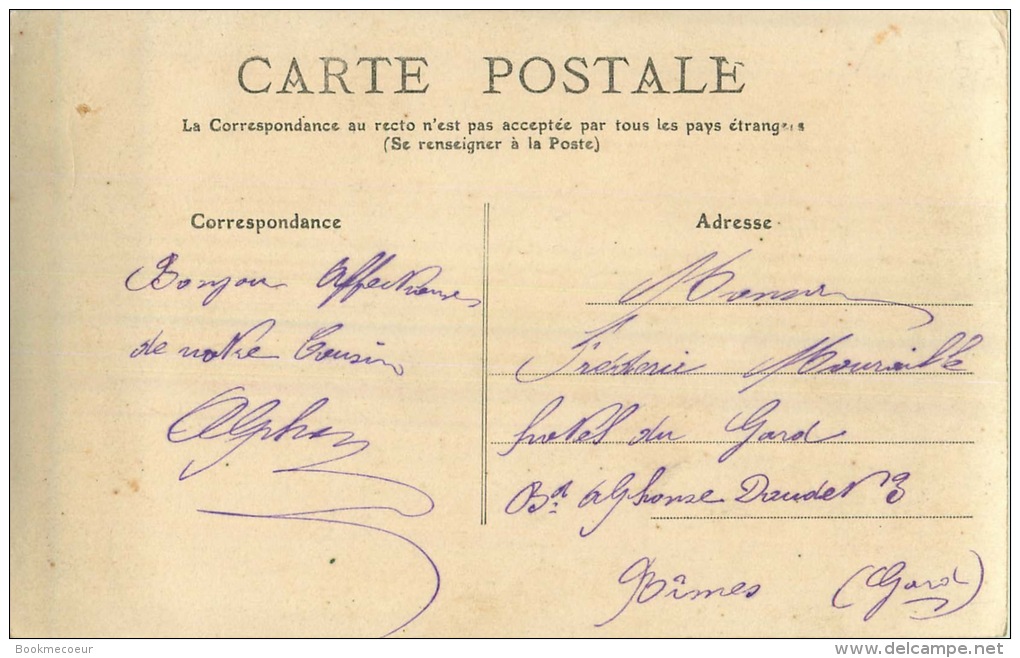 CARTE POSTALE
La Correspondance au recto n'est pas acceptée par tous les pays étrangers
(Se renseigner à la Poste)
Correspondance
Bonjour Affectueux
de notre Cousin
Alphon
Adresse
Monsieur
Fréderic
hotel du Gard
Bd alphonse Daudet 3
Nîmes (Gard)
Bookmecoeur
www.delcampe.net